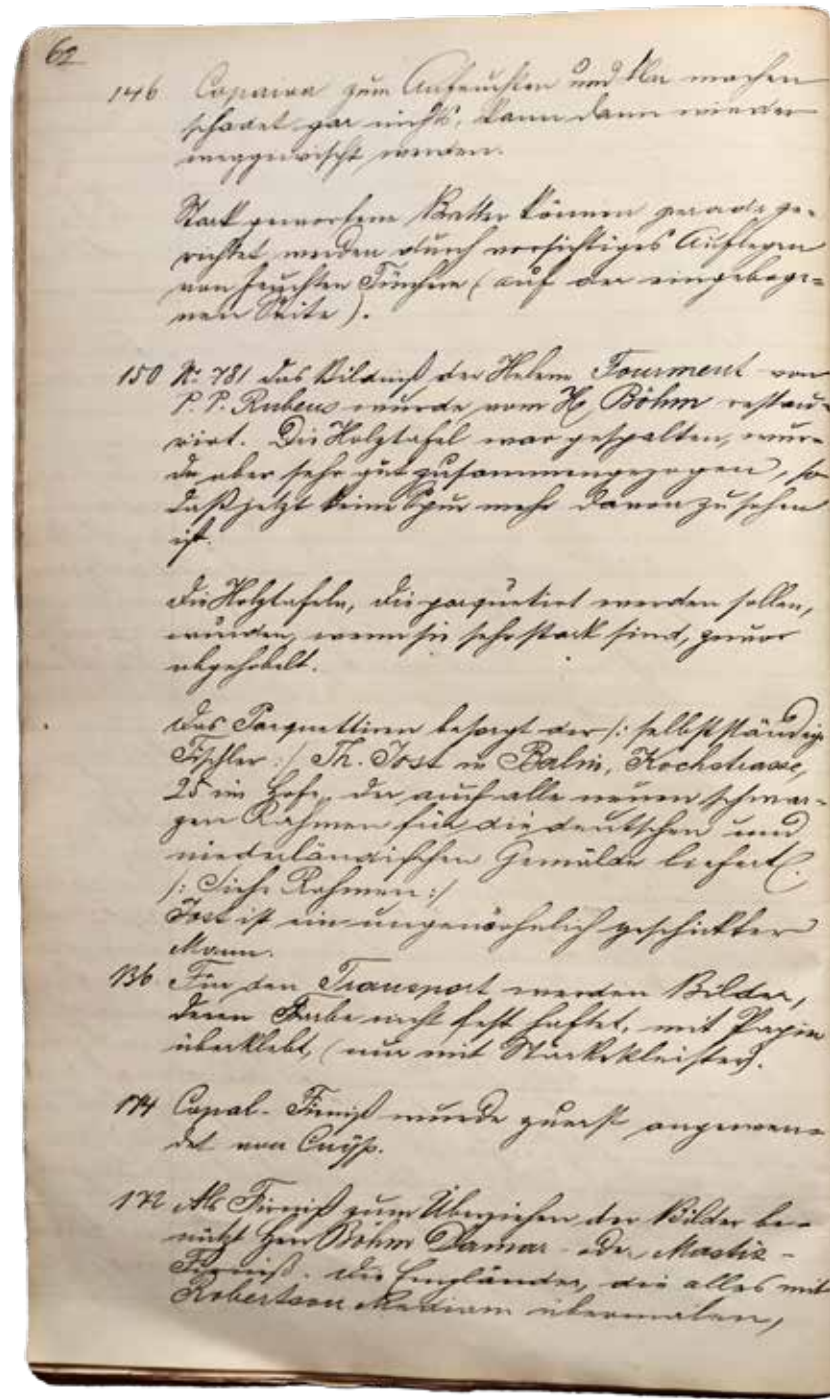 62
146 Copaiva zum Anfeuchten und klar machen
schadet gar nichts, kann dann wieder
weggewischt werden.
Stark geworfene Bretter können gerade ge-
richtet werden durch vorsichtiges Auflegen
von feuchten Tüchern (auf der eingeboge-
nen Seite).
150 No 781 das Bildniß der Helene Fourment von
P. P. Rubens wurde vom H. Böhm restau-
rirt. Die Holztafel war gespalten, wur-
de aber sehr gut zusammengezogen, so
daß jetzt keine Spur mehr davon zu sehen
ist.
Die Holztafeln, die parquetirt werden sollen,
wurden, wenn sie sehr stark sind, zuvor
abgehobelt.
Das Parquettiren besorgt der /: selbstständige
Tischler :/ Th. Jost in Berlin, Kochstrasse,
25 im Hofe, der auch alle neuen schwar-
zen Rahmen für die deutschen und
niederländischen Gemälde liefert.
/: Siehe Rahmen :/
Jost ist ein ungewöhnlich geschickter
Mann.
136 Für den Transport werden Bilder,
deren Farbe nicht fest haftet, mit Papier
überklebt, (nur mit Stärkekleister).
174 Copal-Firniß wurde zuerst angewen-
det von Cuyp.
172 Als Firniß zum Überziehen der Bilder be-
nützt Herr Böhm Damar- oder Mastix-
Firniß. Die Engländer, die alles mit
Robertson Medium übermalen,